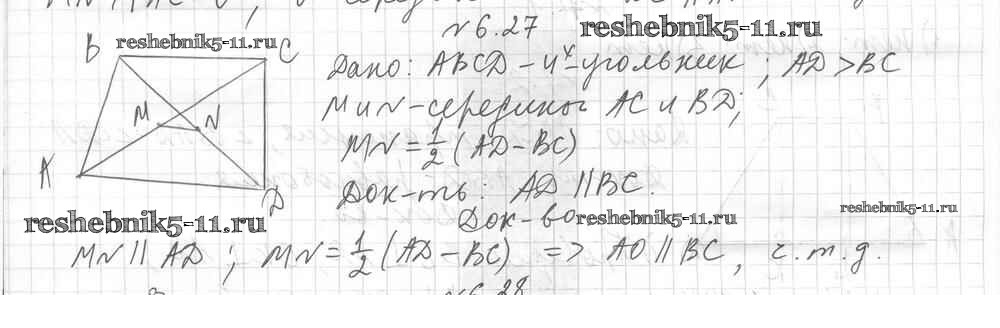 №6.27 reshebnik5-11.ru
B reshebnik5-11.ru C
Дано: ABCD - 4х-угольник ; AD > BC
M и N - середины AC и BD;
M N
MN = 1/2 (AD - BC)
A
Док-ть: AD || BC.
D
reshebnik5-11.ru Док-во reshebnik5-11.ru reshebnik5-11.ru
MN || AD ; MN = 1/2 (AD - BC) => AD || BC, ч.т.д.
№6.28